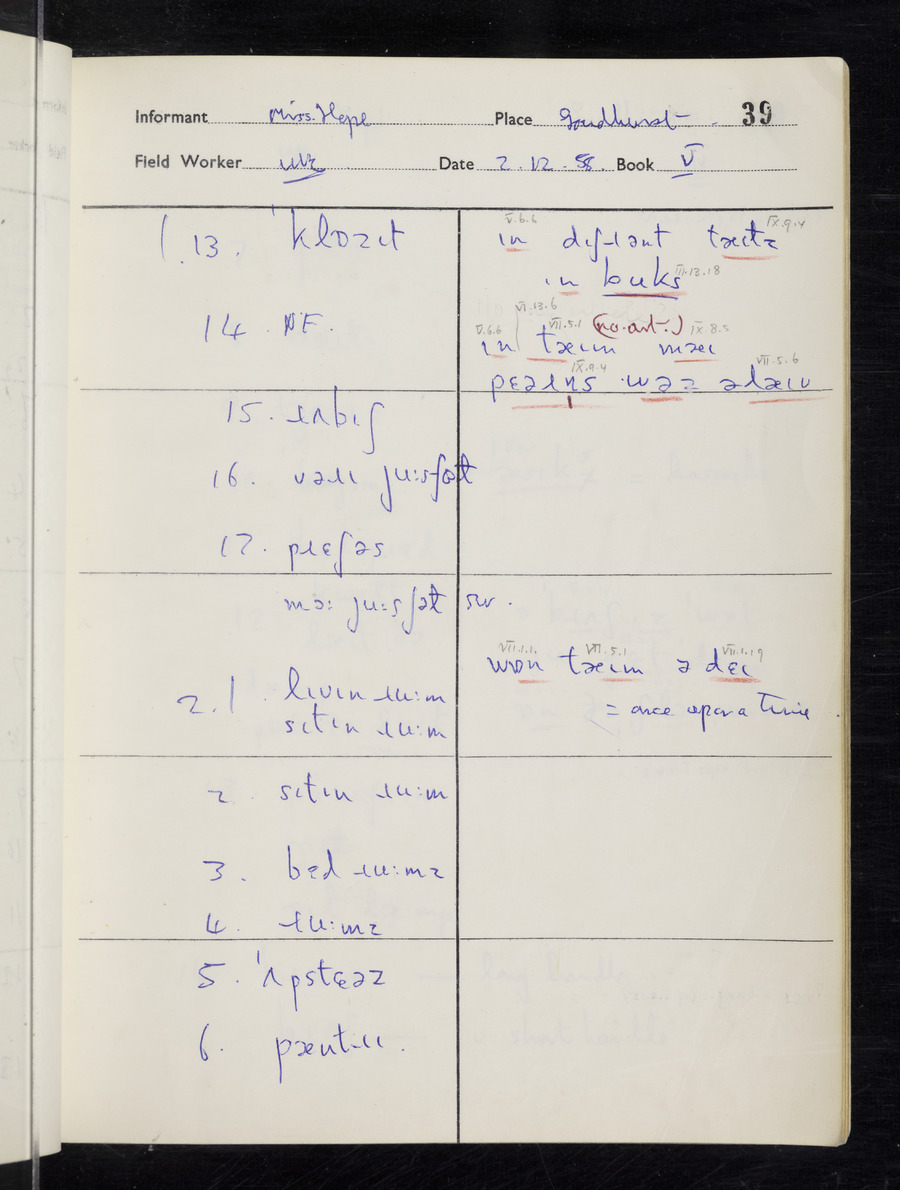 Informant Miss Hope Place Goudhurst 39
Field Worker Date 2.12.58. Book V
1.13. ˈklɒzɪt
14. NF.
15. ɹʌbɪʃ
16. vəɹɪ ju:sfət
17. pɹɛʃəs
mɔ: ju:sfət sw.
2.1. lɪvɪn ɹu:m
sɪtɪn ɹu:m
2. sɪtɪn ɹu:m
3. bɛd ɹu:mz
4. ɹu:mz
5. ˈʌpstɛəz
6. pæntɹɪ.
V.6.6 IX.9.4
ɪn
in buks III.13.18
VI.13.6
V.6.6 VII.5.1 (no art.) IX.8.5
ɪn tæɪm mæɪ
IX.9.4 VII.5.6
wəz əlæʊ
VII.1.1. VII.5.1 VII.1.19
wɒn tæɪm ə dɛɪ
= once upon a time